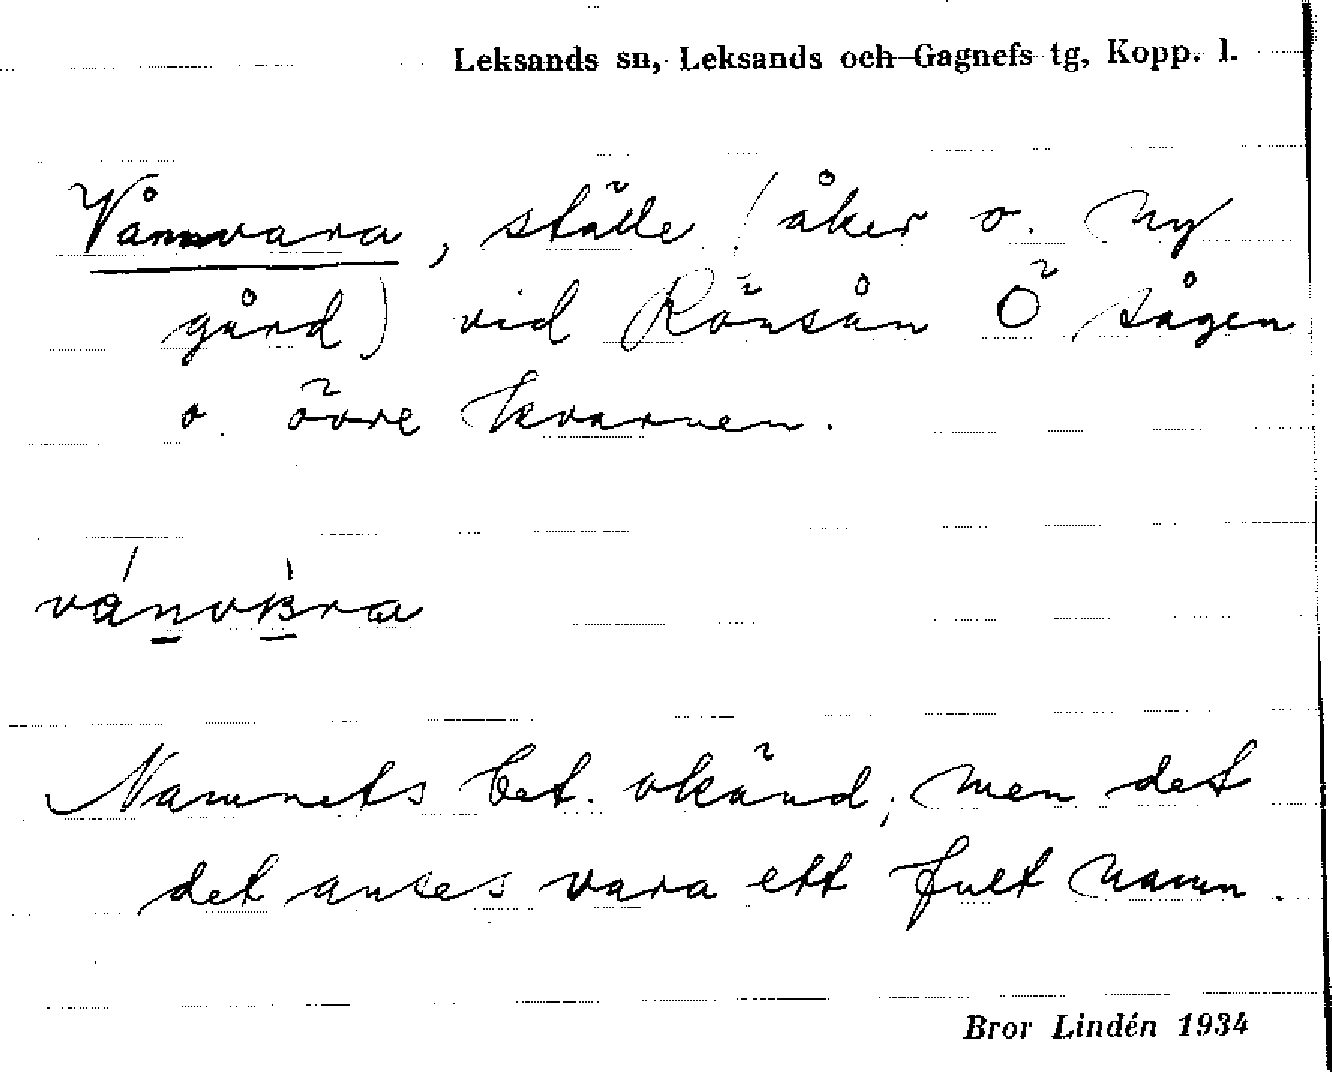 Leksands sn, Leksands och Gagnefs tg, Kopp. l.
Vånnvara, ställe (åker o. ny
gård) vid Rönsån Ö sågen
o. övre kvarnen.
Namnets bet. okänd, men det
det anses vara ett fult namn.
Bror Lindén 1934